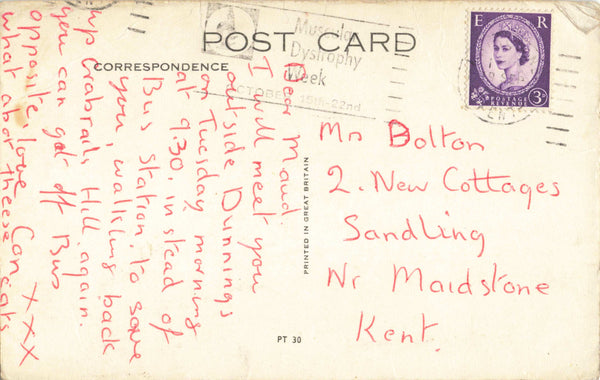 POST CARD
CORRESPONDENCE
Muscular
Dystrophy
Week
OCTOBER 15th-22nd
E R
POSTAGE
REVENUE
3D
Dear Maud.
I will meet you
outside Dunnings
on Tuesday morning
at 9.30. instead of
Bus Station. to save
you, walking back
up Crabrails Hill again.
you can get off Bus
opposite. love Con x x x
what abot theese cats
PRINTED IN GREAT BRITAIN
PT 30
Mrs Bolton
2. New Cottages
Sandling
Nr Maidstone
Kent.